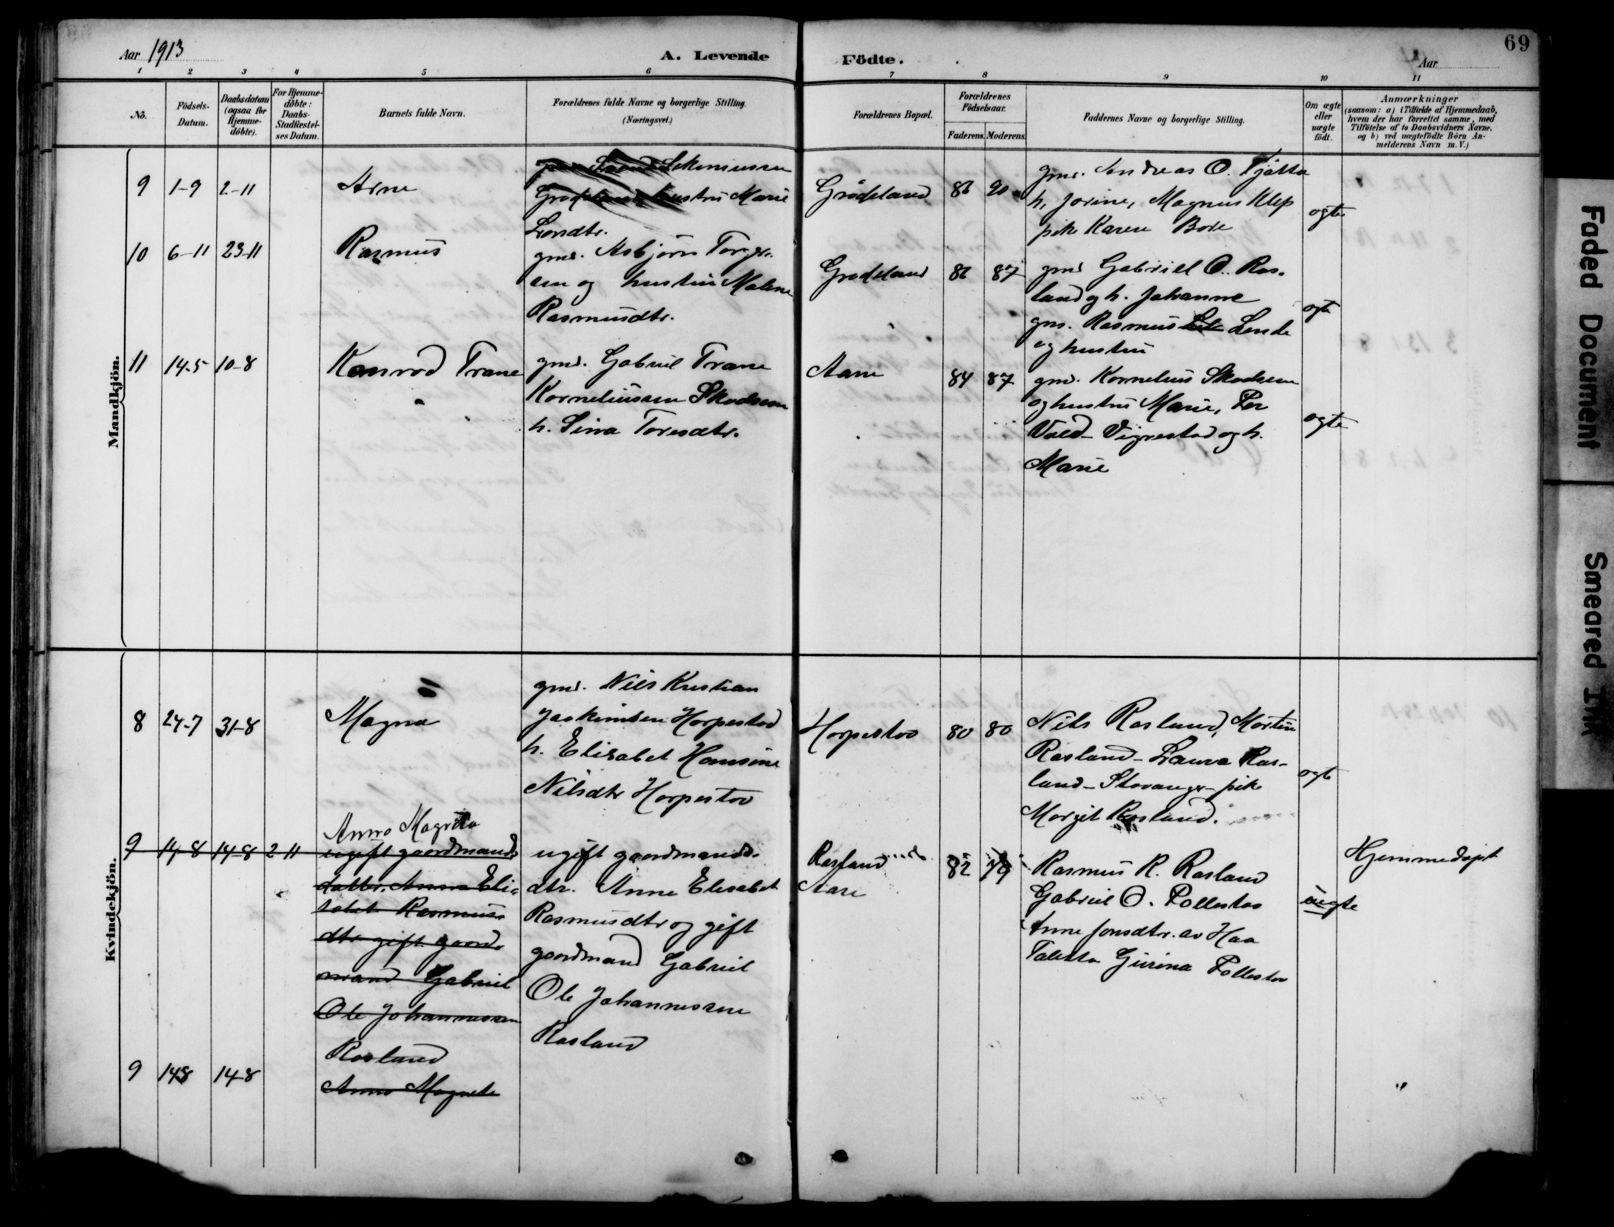 Aar 1913
A. Levende
Födte.
Aar
69
1 2 3 4 5 6 7 8 9 10 11
No.
Födsels-
Datum.
Daabsdatum
(ogsaa for
Hjemme-
döbte).
For Hjemme-
döbte:
Daabs-
Stadfæstel-
ses Datum.
Barnets fulde Navn.
Forældrenes fulde Navne og borgerlige Stilling.
(Næringsvei.)
Forældrenes Bopæl.
Forældrenes
Födselsaar.
Faderens. Moderens.
Faddernes Navne og borgerlige Stilling.
Om ægte
eller
uægte
födt.
Anmærkninger
(saasom: a) i Tilfælde af Hjemmedaab,
hvem der har forrettet samme, med
Tilföielse af to Daabsvidners Navne.
og b) ved uægtefödte Börn An-
melderens Navn m. V.)
Mandkjön.
9 1-9 2-11
Arne
hustru Marie
Londtr.
Grödeland
86 90
gmd. Andreas O. Tjötta
h. Jorine, Magnus Klep
pike Karen Bore
ogte
10 6-11 23-11
Rasmus
gmd. Asbjörn Torger.
sen og hustru Malene
Rasmusdtr.
Grödeland
86 87
gmd Gabriel O. Ras-
land og h. Johanne
gm. Rasmus Lende
og hustru
ogt
11 14-5 10-8
Konrad Trane
gmd. Gabriel Trane
Korneliussen Skadsem
h. Sina Toresdtr.
Aare
84 87
gmd. Kornelius Skadsem
og hustru Marie, Per
Vald- Vigrestad og h.
Marie
ogte
Kvindekjön.
8 24-7 31-8
Magna
gmd. Nils Kristian
Joakimsen Horpestad
h. Elisabet Hansine
Nilsdtr Horpestad
Horpestad
80 80
Nils Rasland, Martin
Rasland- Laura Ras-
land- Stavanger- pike
Margit Rasland.
ogt
9 14-8 14-8 2 11
Anna Magreta
ugift gaardmands
datter Anna Eli-
sabet Rasmus-
dtr gift gaard-
mand Gabriel
Ole Johannessen
Rasland
ugift gaardmands-
dtr. Anne Elisabet
Rasmusdtr og gift
gaardmand Gabriel
Ole Johannessen
Rasland
Rasland
Aare
82 79
Rasmus R. Rasland
Gabriel O. Pollestad
Anne Jonsdtr. av Haa
Taletta Gurina Pollestad
uegte
Hjemmedöpt
9 14.8 14-8
Anna Magrete
Faded Document
Smeared Ink